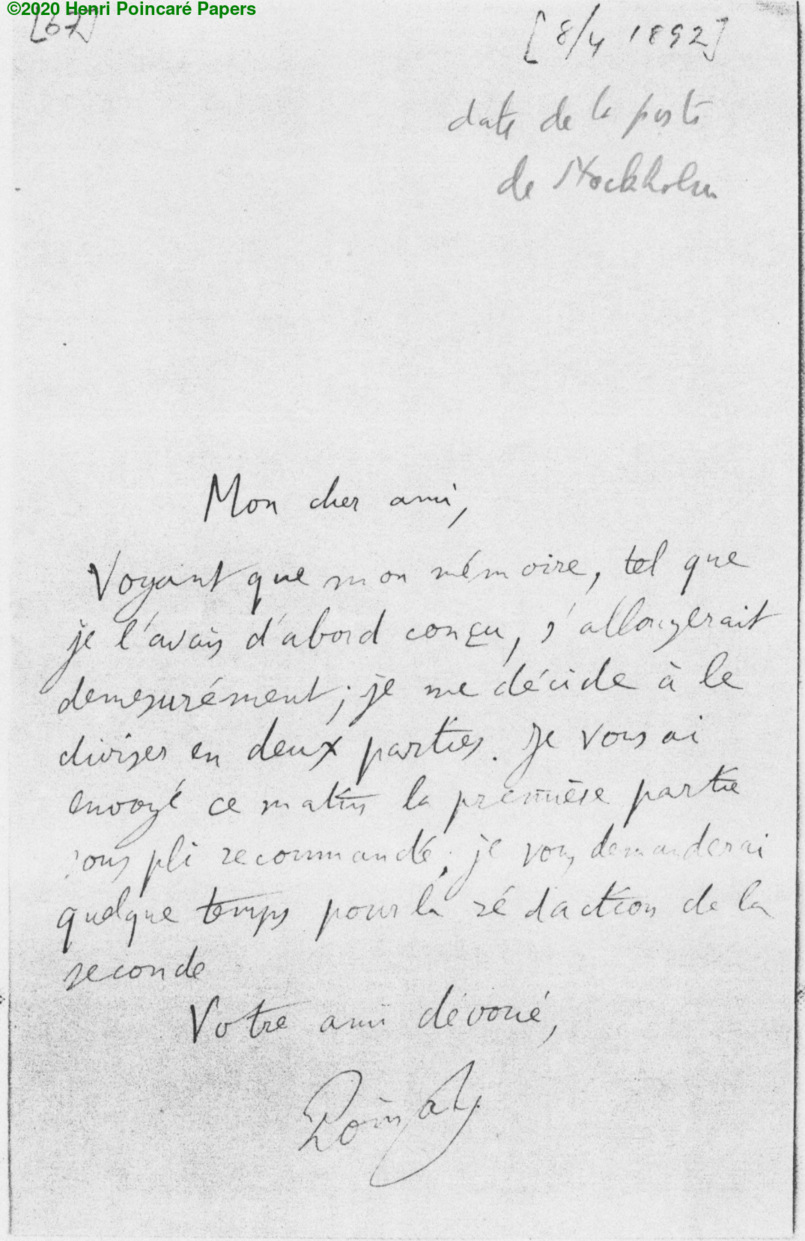 ©2020 Henri Poincaré Papers
[67]
[8/4 1892]
date de la poste
de Stockholm
Mon cher ami,
Voyant que mon mémoire, tel que
je l'avais d'abord conçu, s'allongerait
demesurément; je me décide à le
diviser en deux parties. Je vous ai
envoyé ce matin la première partie
sous pli recommandé; je vous demanderai
quelque temps pour la rédaction de la
seconde
Votre ami dévoué,
Poincaré